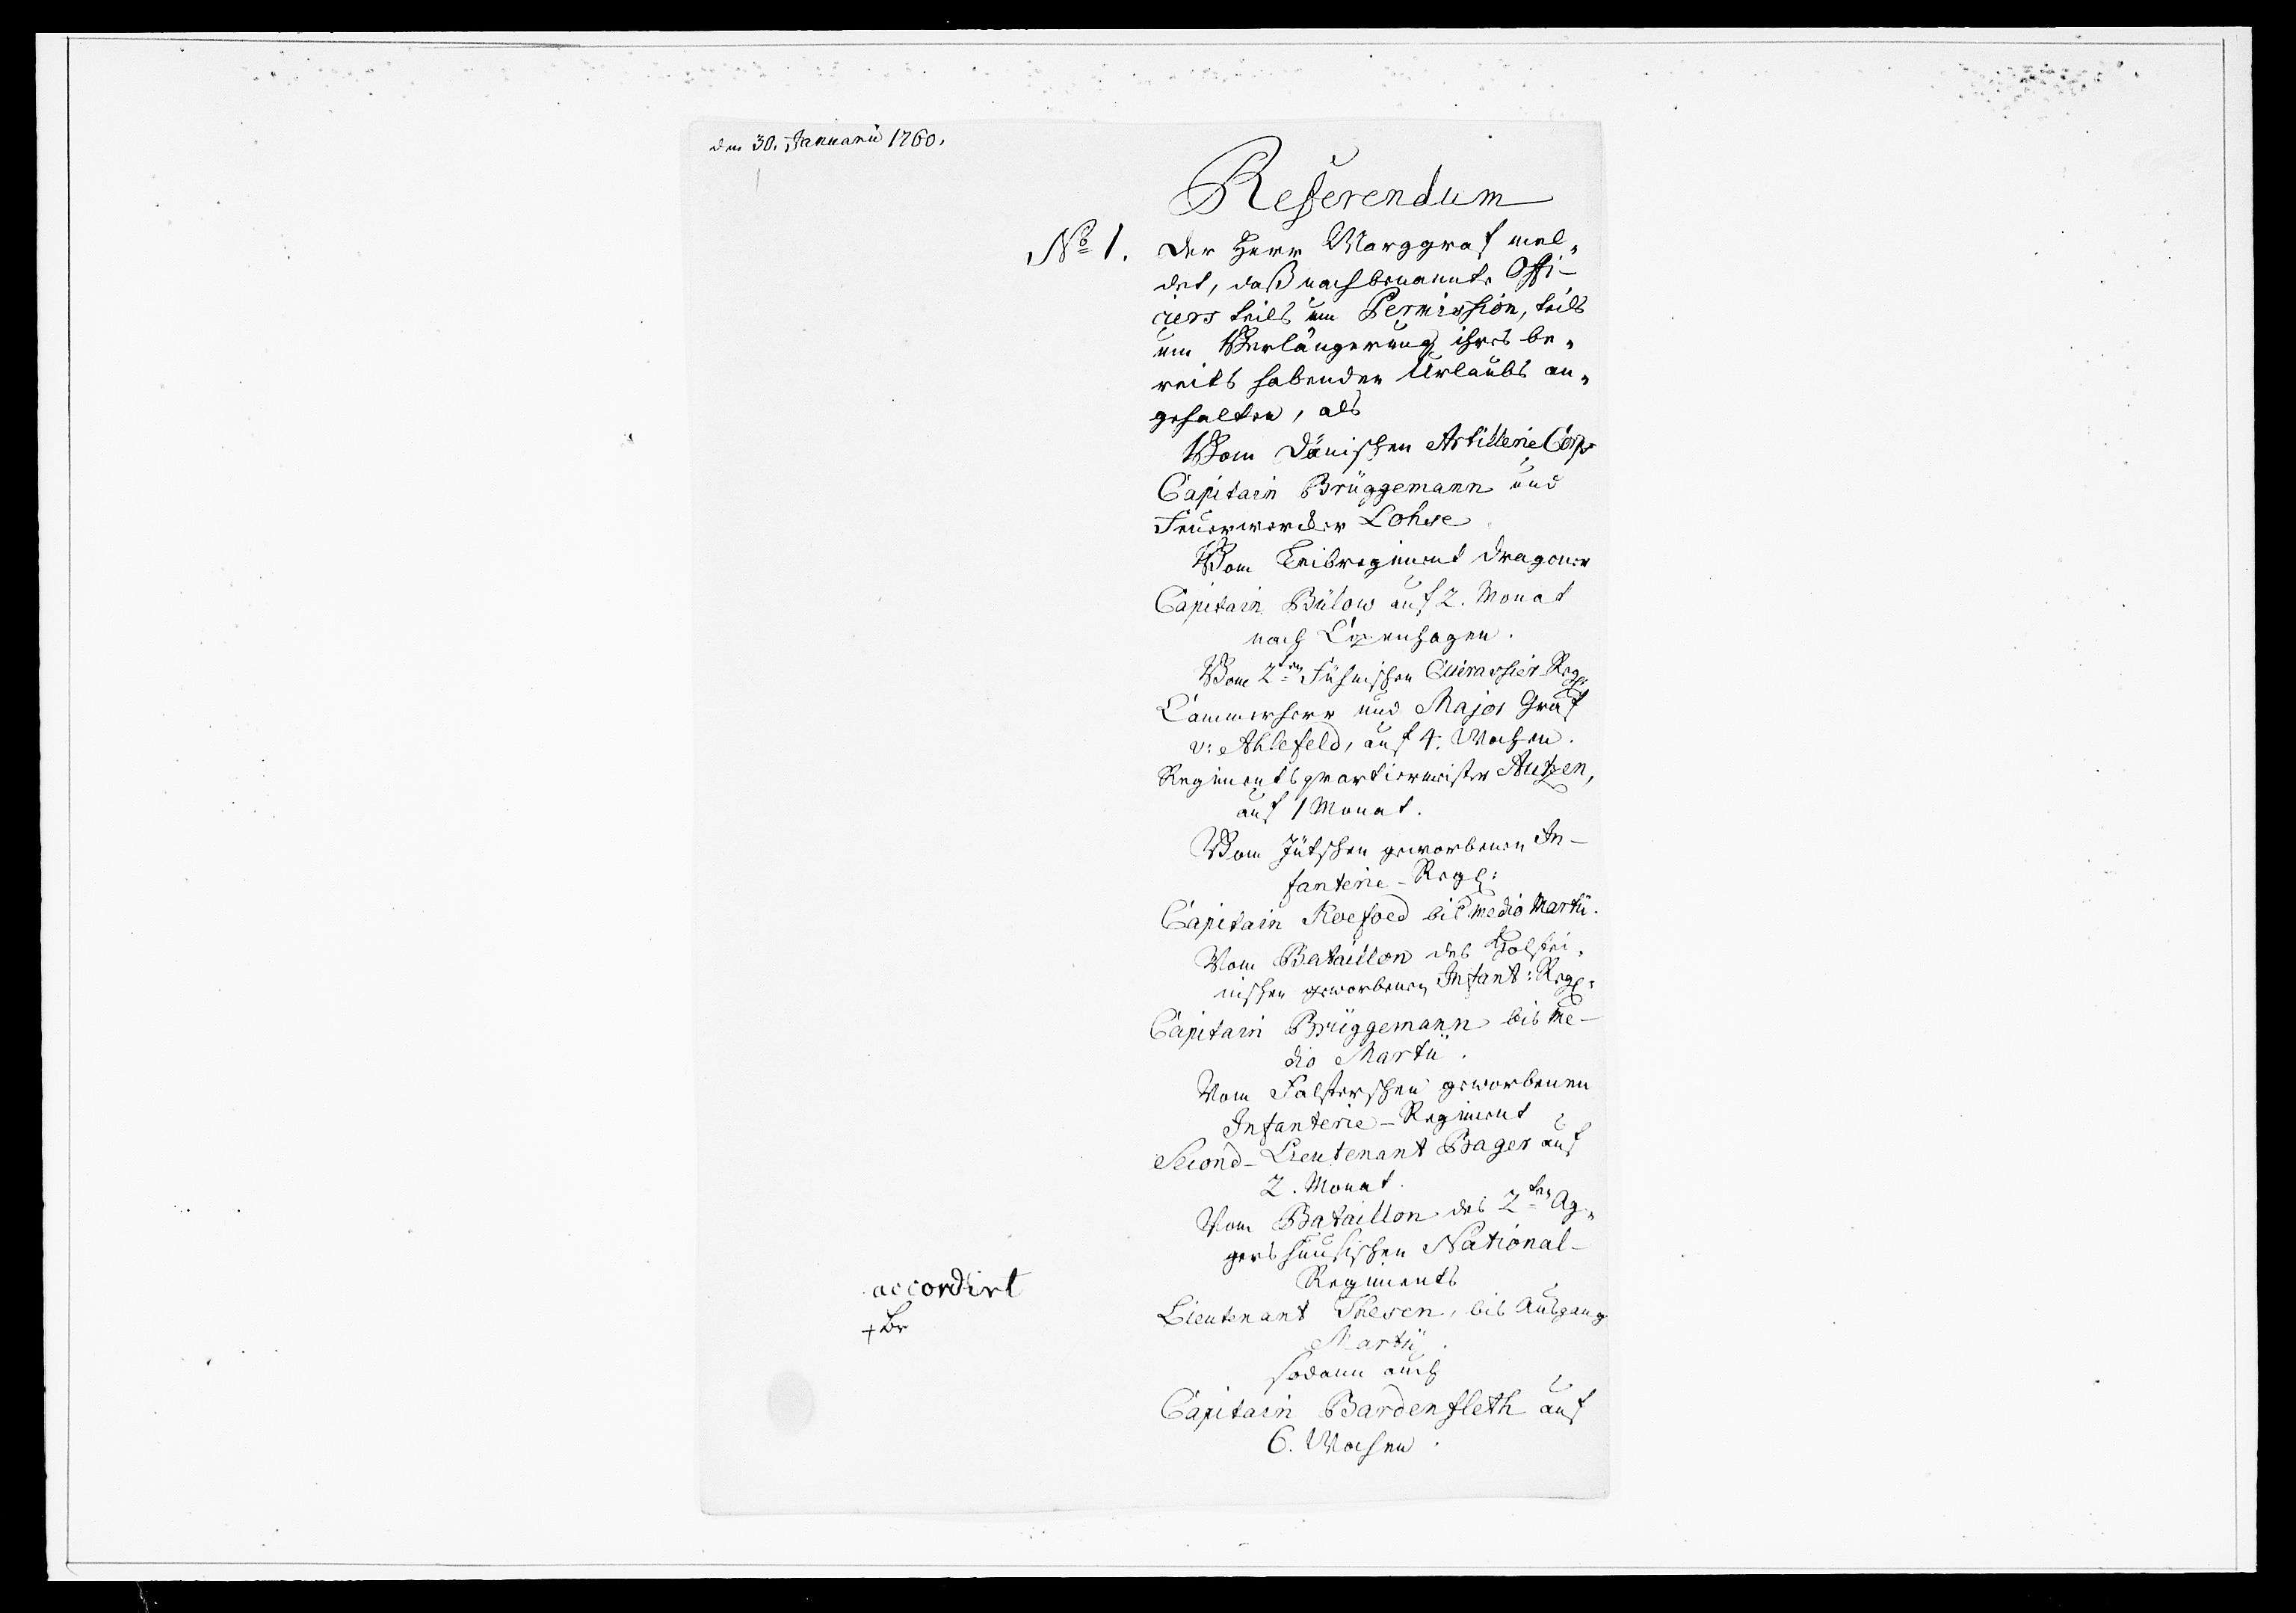 den 30. Januarii 1760.
Referendum
No 1. Der Herr Marggraf mel„
det, daß nachbenannte Offi-
ciers teils um Permission, teils
um Verlängerung ihres be„
reits habenden Urlaubs an„
gehalten, als
Vom Dänischen Artillerie Corps
Capitain Brüggemann und
Feuerwerker Lohse
Vom Leibregiment Dragoner
Capitain Bülow auf 2. Monat
nach Copenhagen.
Vom 2ten Fühnischen Cuirassier-Reg:
Cammerherr und Major Graf
v: Ahlefeld, auf 4. Wochen.
Regimentsquartiermeister Autzen,
auf 1 Monat.
Vom Jütschen geworbenen In-
fanterie-Reg:
Capitain Koefoed bis medio Martii.
Vom Bataillon des Holstei„
nischen geworbenen Infant: Reg:
Capitain Brüggemann bis me-
dio Martii.
Vom Falsterschen geworbenen
Infanterie-Regiment
Second-Lieutenant Bager auf
2. Monat.
Vom Bataillon des 2ten Ag„
gershuusischen National-
Regiments
accordirt
Lieutenant Thesen, bis Ausgang
Martii.
sodann auch
Capitain Bardenfleth auf
6. Wochen.